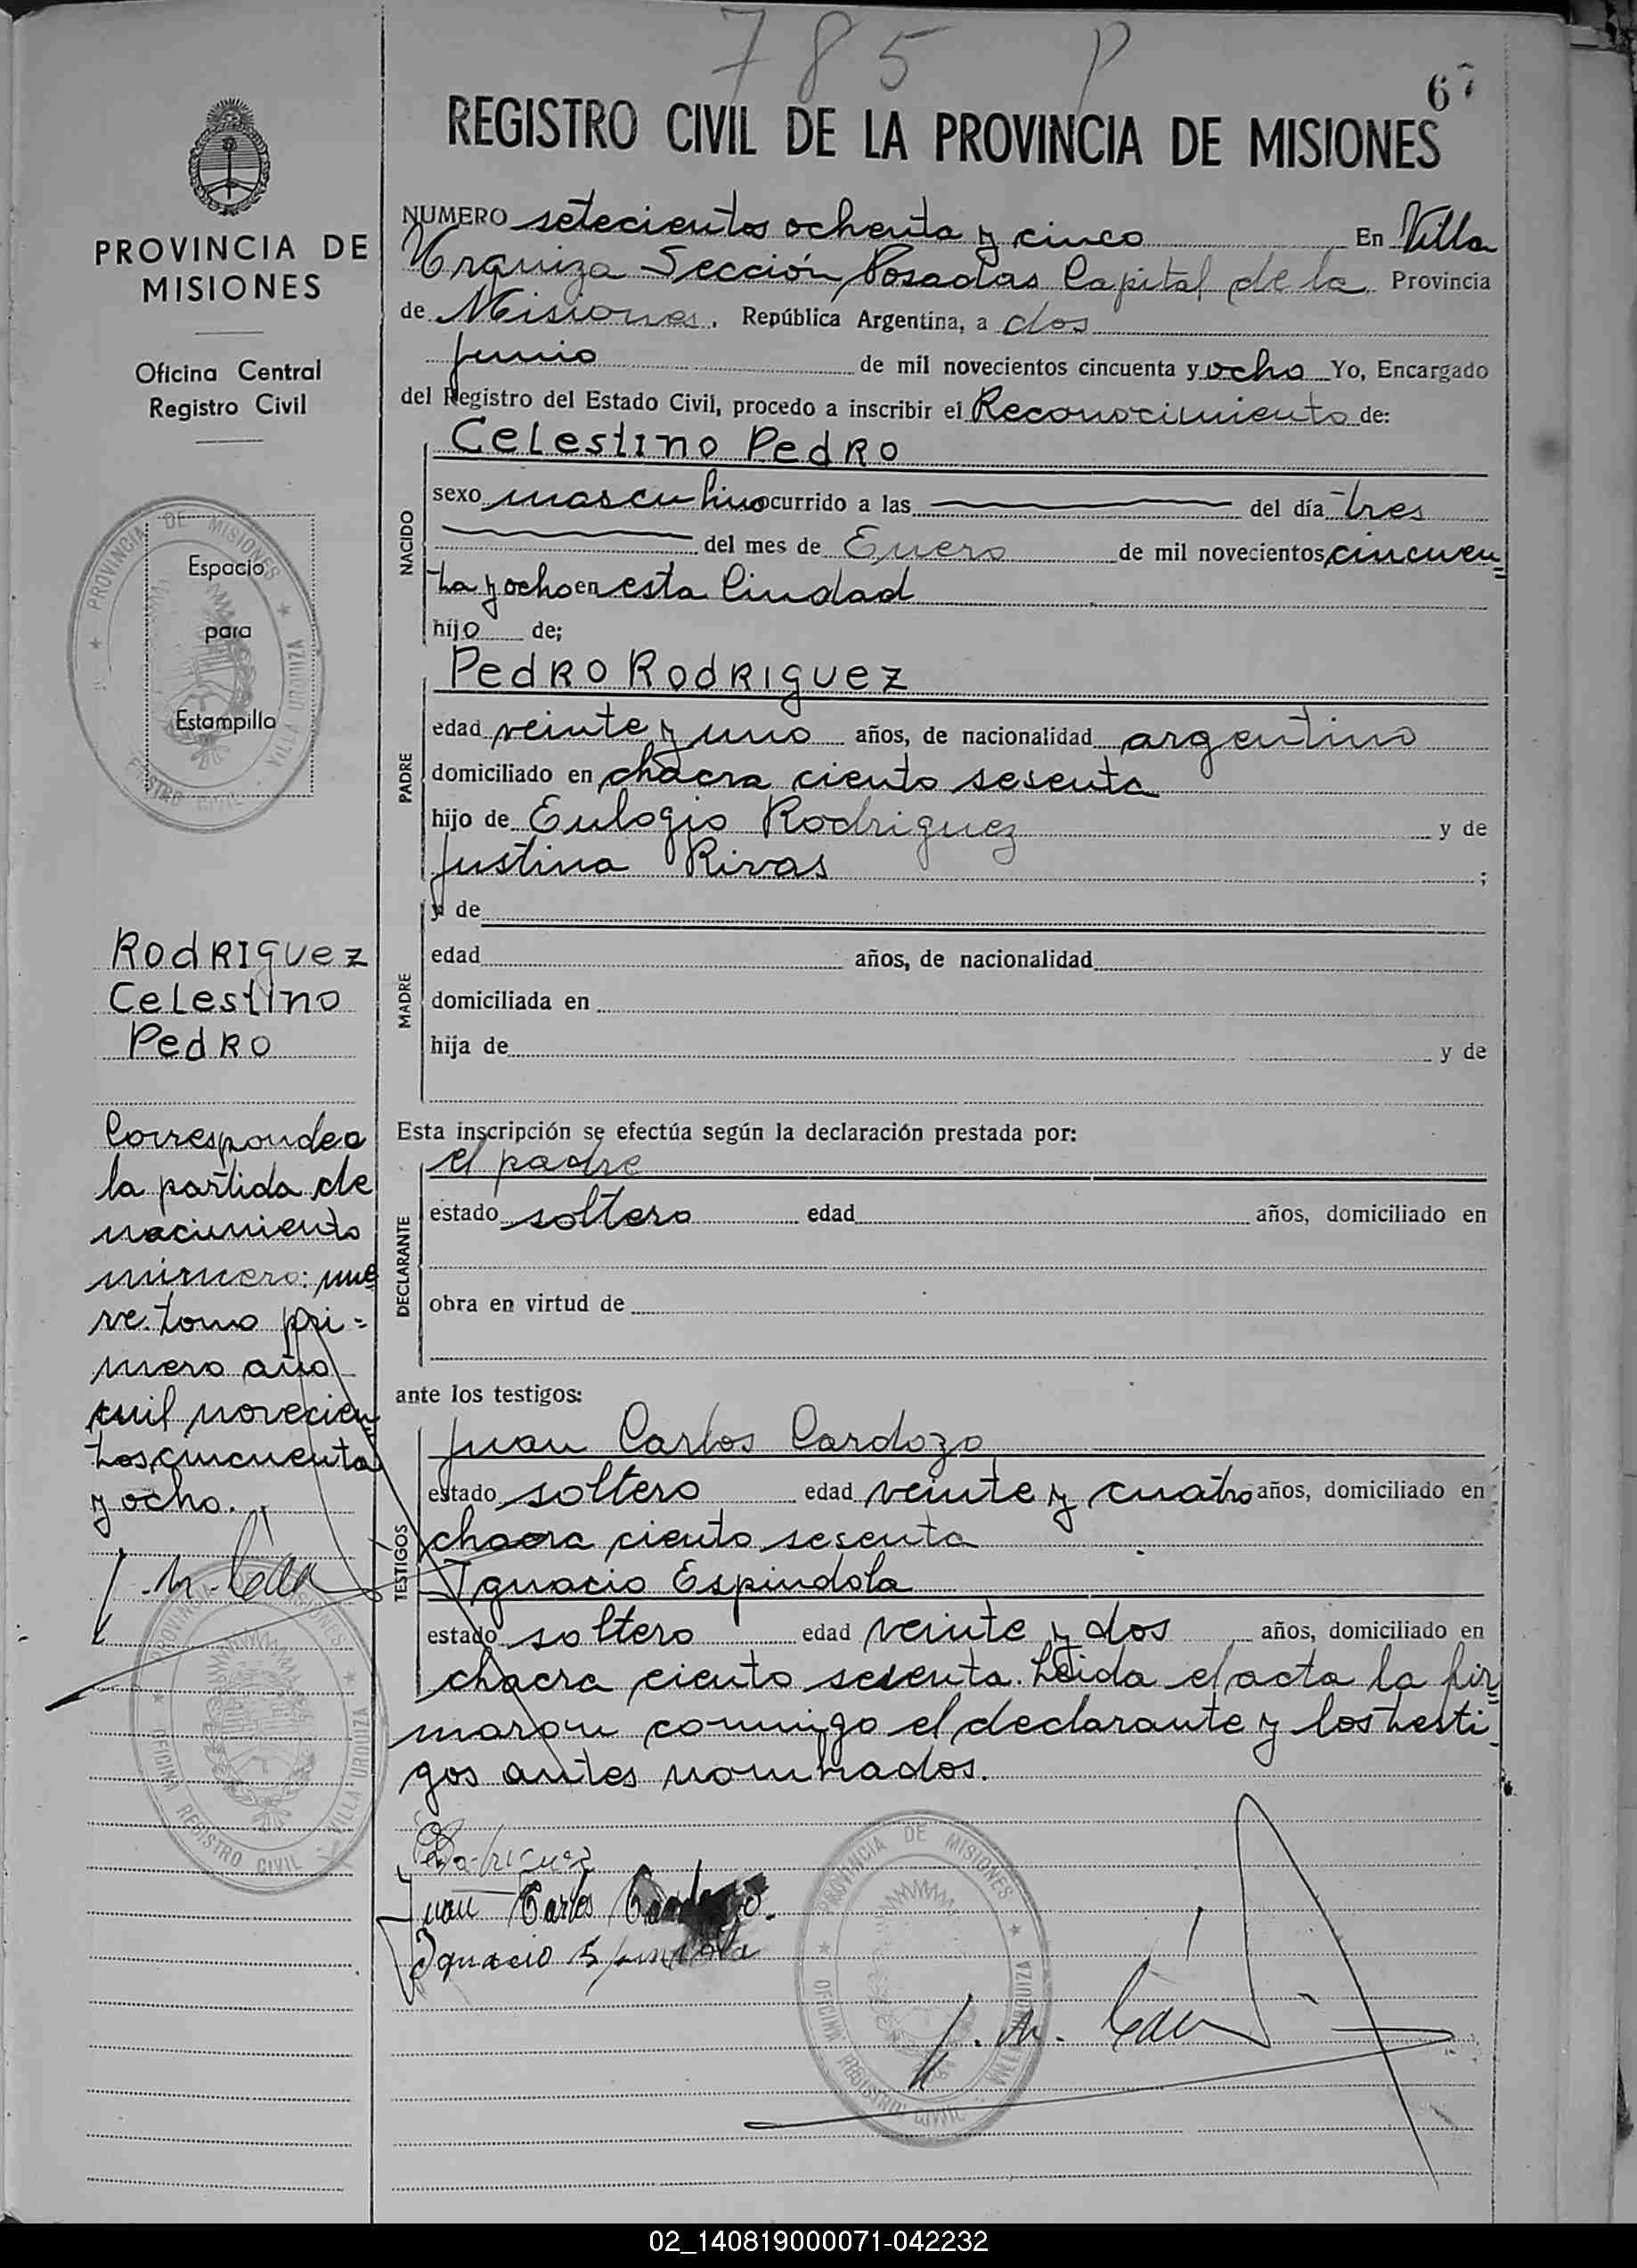 785 P
67
REGISTRO CIVIL DE LA PROVINCIA DE MISIONES
PROVINCIA DE
MISIONES
Oficina Central
Registro Civil
Espacio
para
Estampilla
PROVINCIA DE MISIONES
VILLA URQUIZA
Rodriguez
Celestino
Pedro
Corresponde a
la partida de
nacimiento
número: nue
ve. tomo pri=
mero año
mil novecien
tos cincuenta
y ocho.
PROVINCIA MISIONES
OFICINA REGISTRO CIVIL VILLA URQUIZA
NUMERO setecientos ochenta y cinco En Villa
Urquiza Sección Posadas Capital de la Provincia
de Misiones. República Argentina, a dos
junio de mil novecientos cincuenta y ocho Yo, Encargado
del Registro del Estado Civil, procedo a inscribir el Reconocimiento de:
Celestino Pedro
NACIDO
sexo masculino ocurrido a las del día tres
del mes de Enero de mil novecientos cincuen=
ta y ocho en esta Ciudad
hijo de;
Pedro Rodriguez
PADRE
edad veinte y uno años, de nacionalidad argentino
domiciliado en chacra ciento sesenta
hijo de Eulogio Rodriguez y de
Justina Rivas ;
y de
MADRE
edad años, de nacionalidad
domiciliada en
hija de y de
Esta inscripción se efectúa según la declaración prestada por:
el padre
DECLARANTE
estado soltero edad años, domiciliado en
obra en virtud de
ante los testigos:
Juan Carlos Cardozo
TESTIGOS
estado soltero edad veinte y cuatro años, domiciliado en
chacra ciento sesenta
Ignacio Espindola
estado soltero edad veinte y dos años, domiciliado en
chacra ciento sesenta. Leida el acta la fir=
maron conmigo el declarante y los testi=
gos antes nombrados.
Juan Carlos Cardozo.
Ignacio
PROVINCIA DE MISIONES
OFICINA REGISTRO CIVIL VILLA URQUIZA
02_140819000071-042232